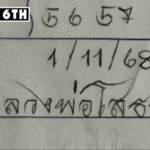 6TH
5 6 5 7
1/11/68
หลวงพ่อโสธร